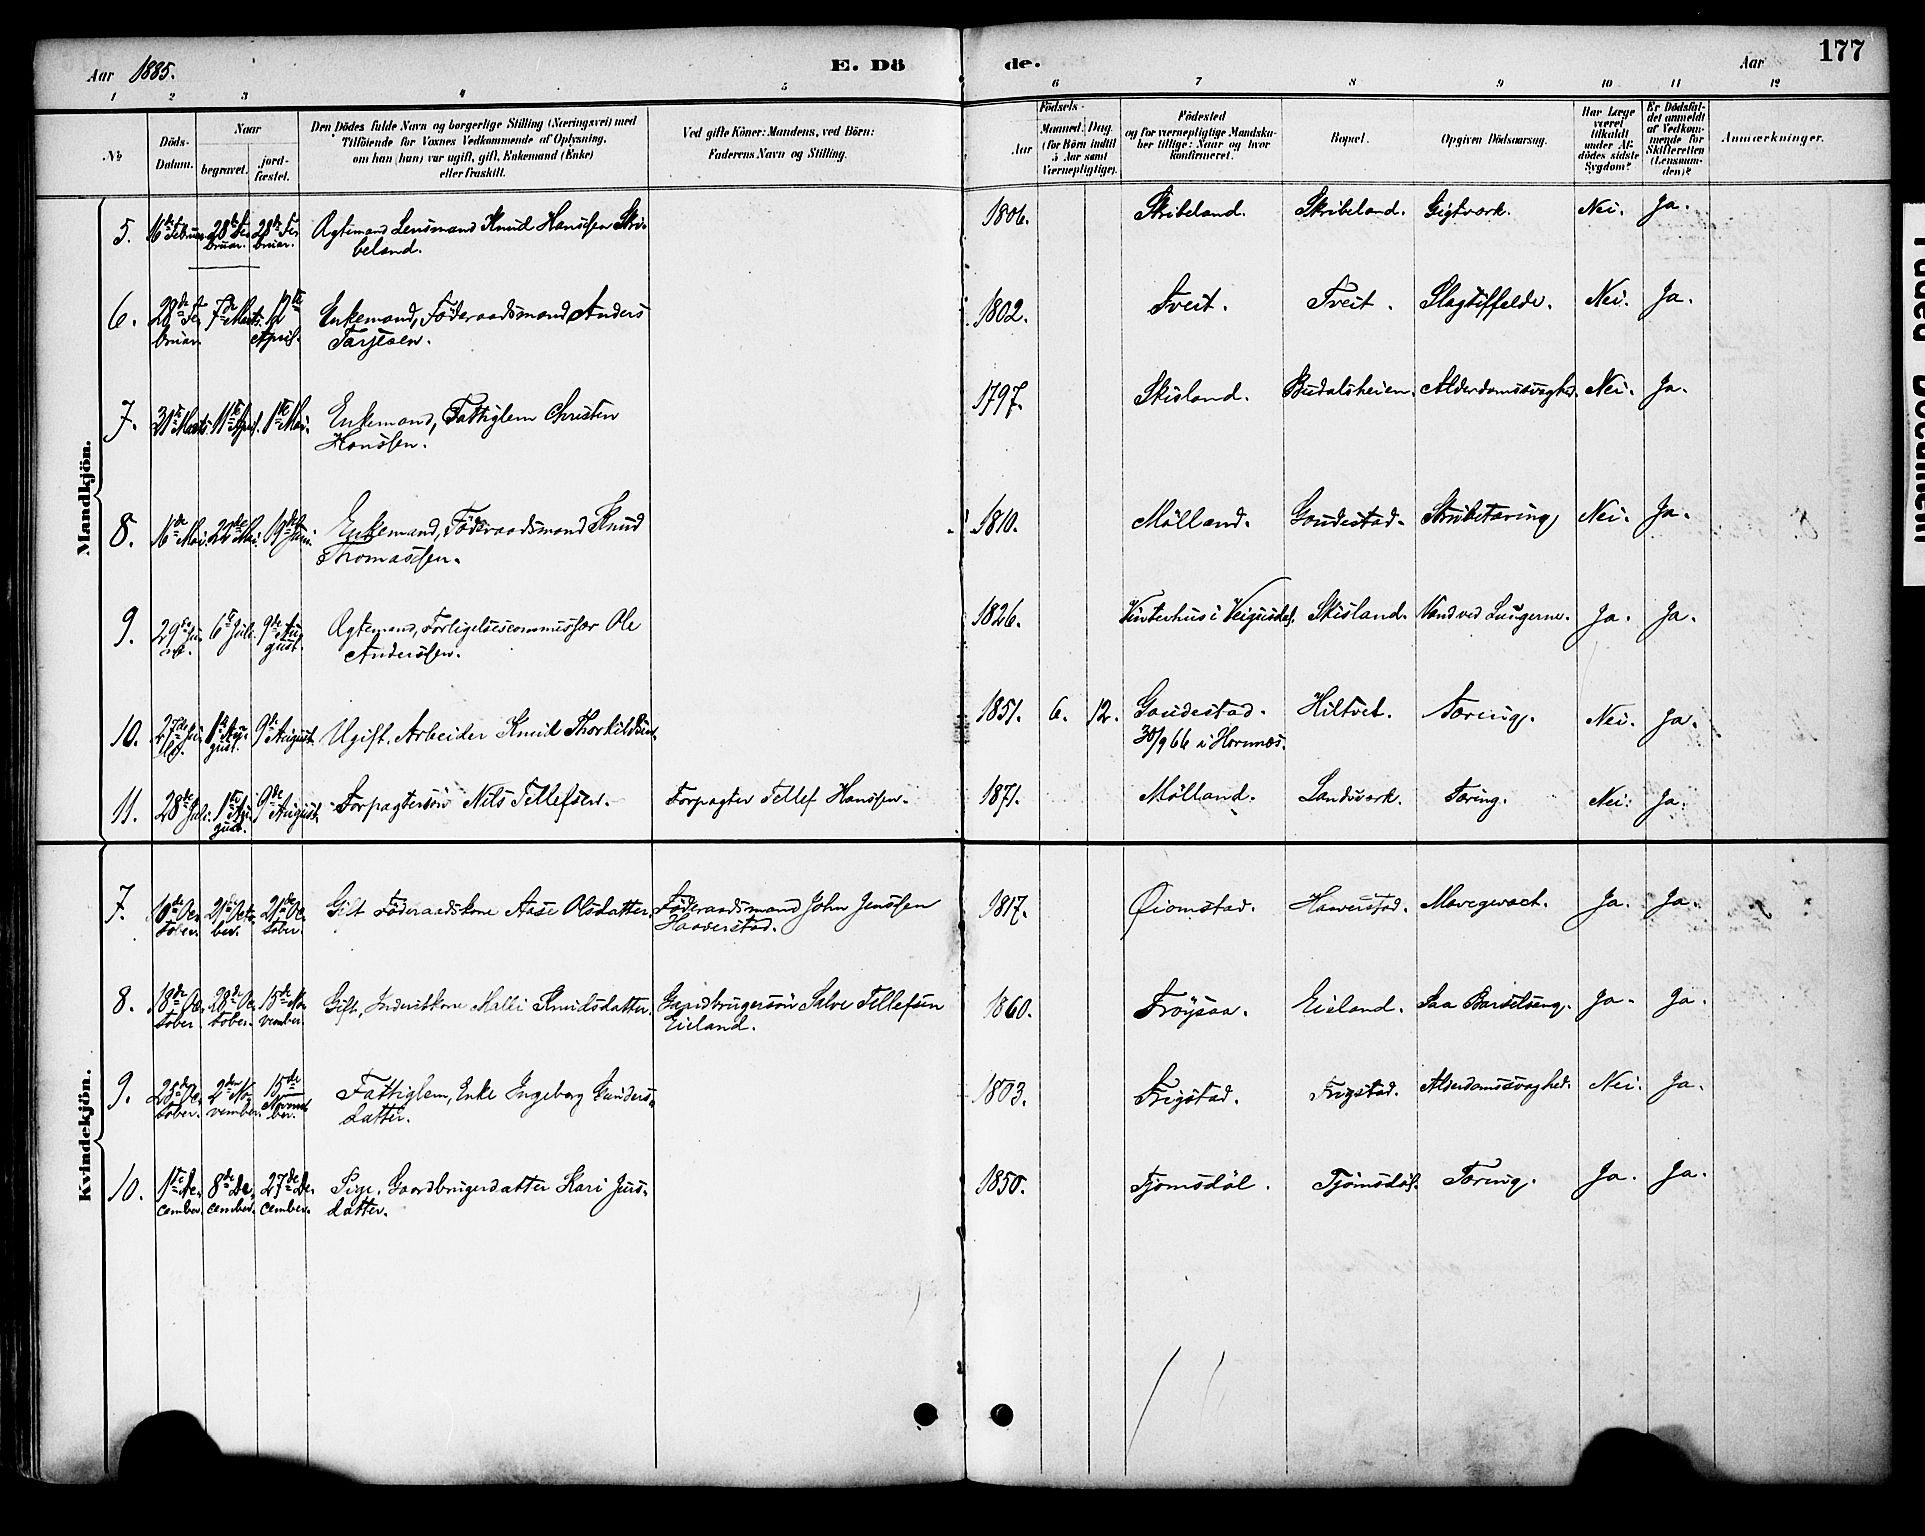 Aar 1885. E. Dö de. Aar 177
1 2 3 4 5 6 7 8 9 10 11 12
№
Döds-Datum.
Naar
begravet. jordfæstet.
Den Dödes fulde Navn og borgerlige Stilling (Næringsvei) med
Tilföiende for Voxnes Vedkommende af Oplysning,
om han (hun) var ugift, gift, Enkemand (Enke)
eller fraskilt.
Ved gifte Koner: Mandens, ved Börn:
Faderens Navn og Stilling.
Födsels-
Aar Maaned. Dag.
(for Börn indtil
5 Aar samt
Værnepligtige).
Födested
og for værnepligtige Mandskaber tillige: Naar og hvor
konfirmeret.
Bopæl.
Opgiven Dödsaarsag.
Har Læge været tilkaldt under Afdödes sidste Sygdom?
Er Dödsfaldet anmeldt af Vedkommende for Skifteretten (Lensmanden)?
Anmærkninger.
Mandkjön.
5. 16de Februar 28de Februar. 28de Februar. Ægtemand Lensmand Knud Hanssen Skribeland. 1806. Skribeland. Skribeland. Gigtværk. Nei. Ja.
6. 28de Februar. 7de Marts. 12te April. Enkemand, Föderaadsmand Anders Tarjesen. 1802. Tveit. Tveit. Slagtilfælde. Nei. Ja.
7. 31te Marts. 11te April. 1ste Mai. Enkemand, Fattiglem Christen Hanssen. 1797. Skisland. Budalsheien. Alderdomssvaghed. Nei. Ja.
8. 16de Mai. 22de Mai. 19de Juni. Enkemand, Föderaadsmand Knud Thomassen. 1810. Mölland. Gaudestad. Strubetæring. Nei. Ja.
9. 29de Juni. 6te Juli. 9de August. Ægtemand, Forligelsescommissær Ole Anderssen. 1826. Vinterhus i Veigusdal. Skisland. Vand ved Lungerne. Ja. Ja.
10. 27de Juli. 1ste August. 9de August. Ugift, Arbeider Knud Thorkildsen. 1851. 6. 12. Gaudestad. 30/9 66 i Hornnes. Hiltvet. Tæring. Nei. Ja.
11. 28de Juli. 1ste August. 9de August. Forpagtersön Nils Tellefsen. Forpagter Tellef Hanssen. 1871. Mölland. Landsværk. Tæring. Nei. Ja.
Kvindekjön.
7. 16de October. 21de October. 21de October. Gift Föderaadskone Aase Olsdatter. Föderaadsmand John Jenssen Haaverstad. 1817. Øiomstad. Haaverstad. Mavegevæct. Ja. Ja.
8. 18de October. 28de October. 15de November. Gift, Inderstkone Malli Knudsdatter. Gaardbrugersön Salve Tellefsen Eieland. 1860. Fröysaa. Eieland. Paa Barselseng. Ja. Ja.
9. 25de October. 2den November. 15de November. Fattiglem, Enke Ingeborg Gundersdatter. 1803. Frigstad. Frigstad. Alderdomssvaghed. Nei. Ja.
10. 1ste December. 8de December. 27de December. Pige, Gaardbrugerdatter Kari Jensdatter. 1850. Tjomsdöl. Tjömsdöl. Tæring. Ja. Ja.